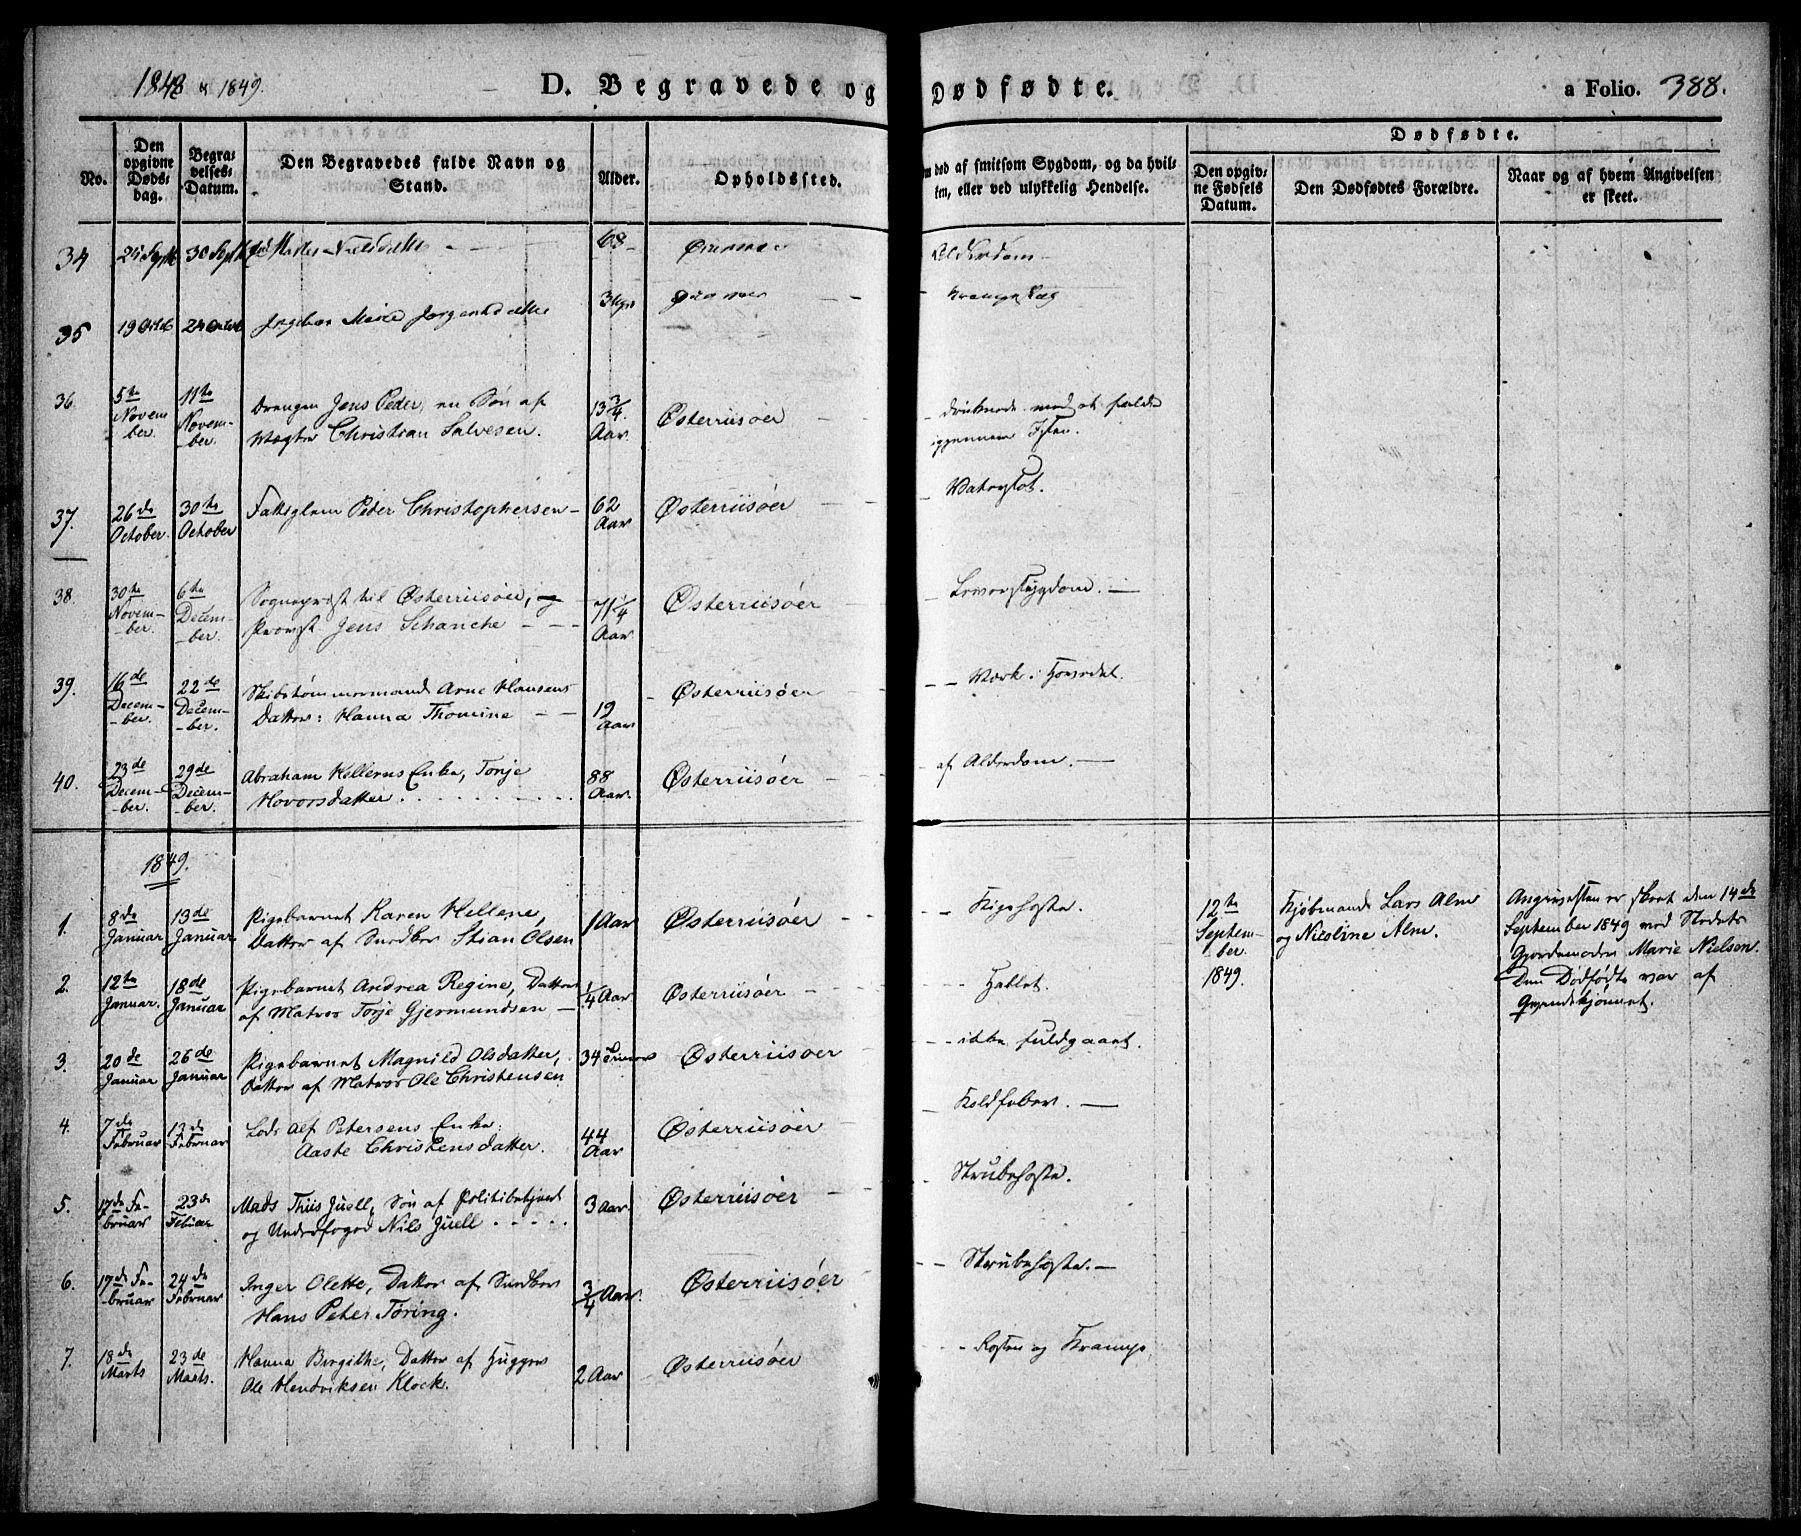 1848 & 1849.
D. Begravede og Dødfødte.
a Folio. 388.
No.
Den opgivne Døds-dag.
Begra-velses-Datum.
Den Begravedes fulde Navn og Stand.
Alder.
Opholdssted.
død af smitsom Sygdom, og da hvil-
ken, eller ved ulykkelig Hendelse.
Dødfødte.
Den opgiv-ne Fødsels Datum.
Den Dødfødtes Forældre.
Naar og af hvem Angivelsen er skeet.
34 24 Septb 30 Septb 68 Alderdom
35 19 Octb 24 Octob Ingebor Marie Jørgensdatter
36. 5te November. 11te November. Drengen Jens Peder, en Søn af
Vægter Christian Salvesen. 13 3/4 Aar Østerriisøer druknede med at falde
igjennem Isen.
37. 26de October. 30te October Fattiglem Peder Christophersen 62 Aar Østerriisøer Vatersot.
38. 30te November. 6te December. Sognepræst til Østerriisøer, og
Provst Jens Schanche 71 1/4 Aar Østerriisøer Leversygdom.
39. 16de December. 22de December. Skibstømmermand Arne Hansens
Datter: Hanna Thomine 19 Aar Østerriisøer Værk i Hovedet.
40. 23de December. 29de December. Abraham Kellerns Enke, Tonje
Hovorsdatter. 88 Aar. Østerriisøer af Alderdom.
1849.
1. 8de Januar 13de Januar. Pigebarnet Karen Hellene,
Datter af Snedker Stian Olsen 1 Aar Østerriisøer Kighoste.
12te September. 1849.
Kjøbmand Lars Alm
og Nicoline Alm.
Angivelsen er skeet den 14de
September 1849 ved Stedets
Gjordemoder Marie Nielsen.
Den Dødfødte var af
Qvindekjønnet.
2. 12te Januar. 18de Januar Pigebarnet Andrea Regine, Datter
af Matros Torje Gjermundsen 1/4 Aar Østerriisøer
3. 20de Januar 26de Januar Pigebarnet Magnild Olsdatter,
Datter af Matros Ole Christensen 34 Timers Østerriisøer ikke fuldgaaet.
4. 7de Februar 13de Februar Lods Alf Petersens Enke:
Aaste Christensdatter. 44 Aar Østerriisøer Koldfeber.
5. 17de Februar 23de Febuar Mads Thiis Juell, Søn af Politibetjent
og Underfoged Nils Juell 3 Aar. Østerriisøer Strubehoste.
6. 17de Februar 24de Februar Inger Olette, Datter af Snedker
Hans Peter Tøring. 3/4 Aar. Østerriisøer Strubehoste.
7. 18de Marts 23de Marts. Hanna Birgithe, Datter af
Ole Hendriksen Klock. 2 Aar Østerriisøer og Krampe.